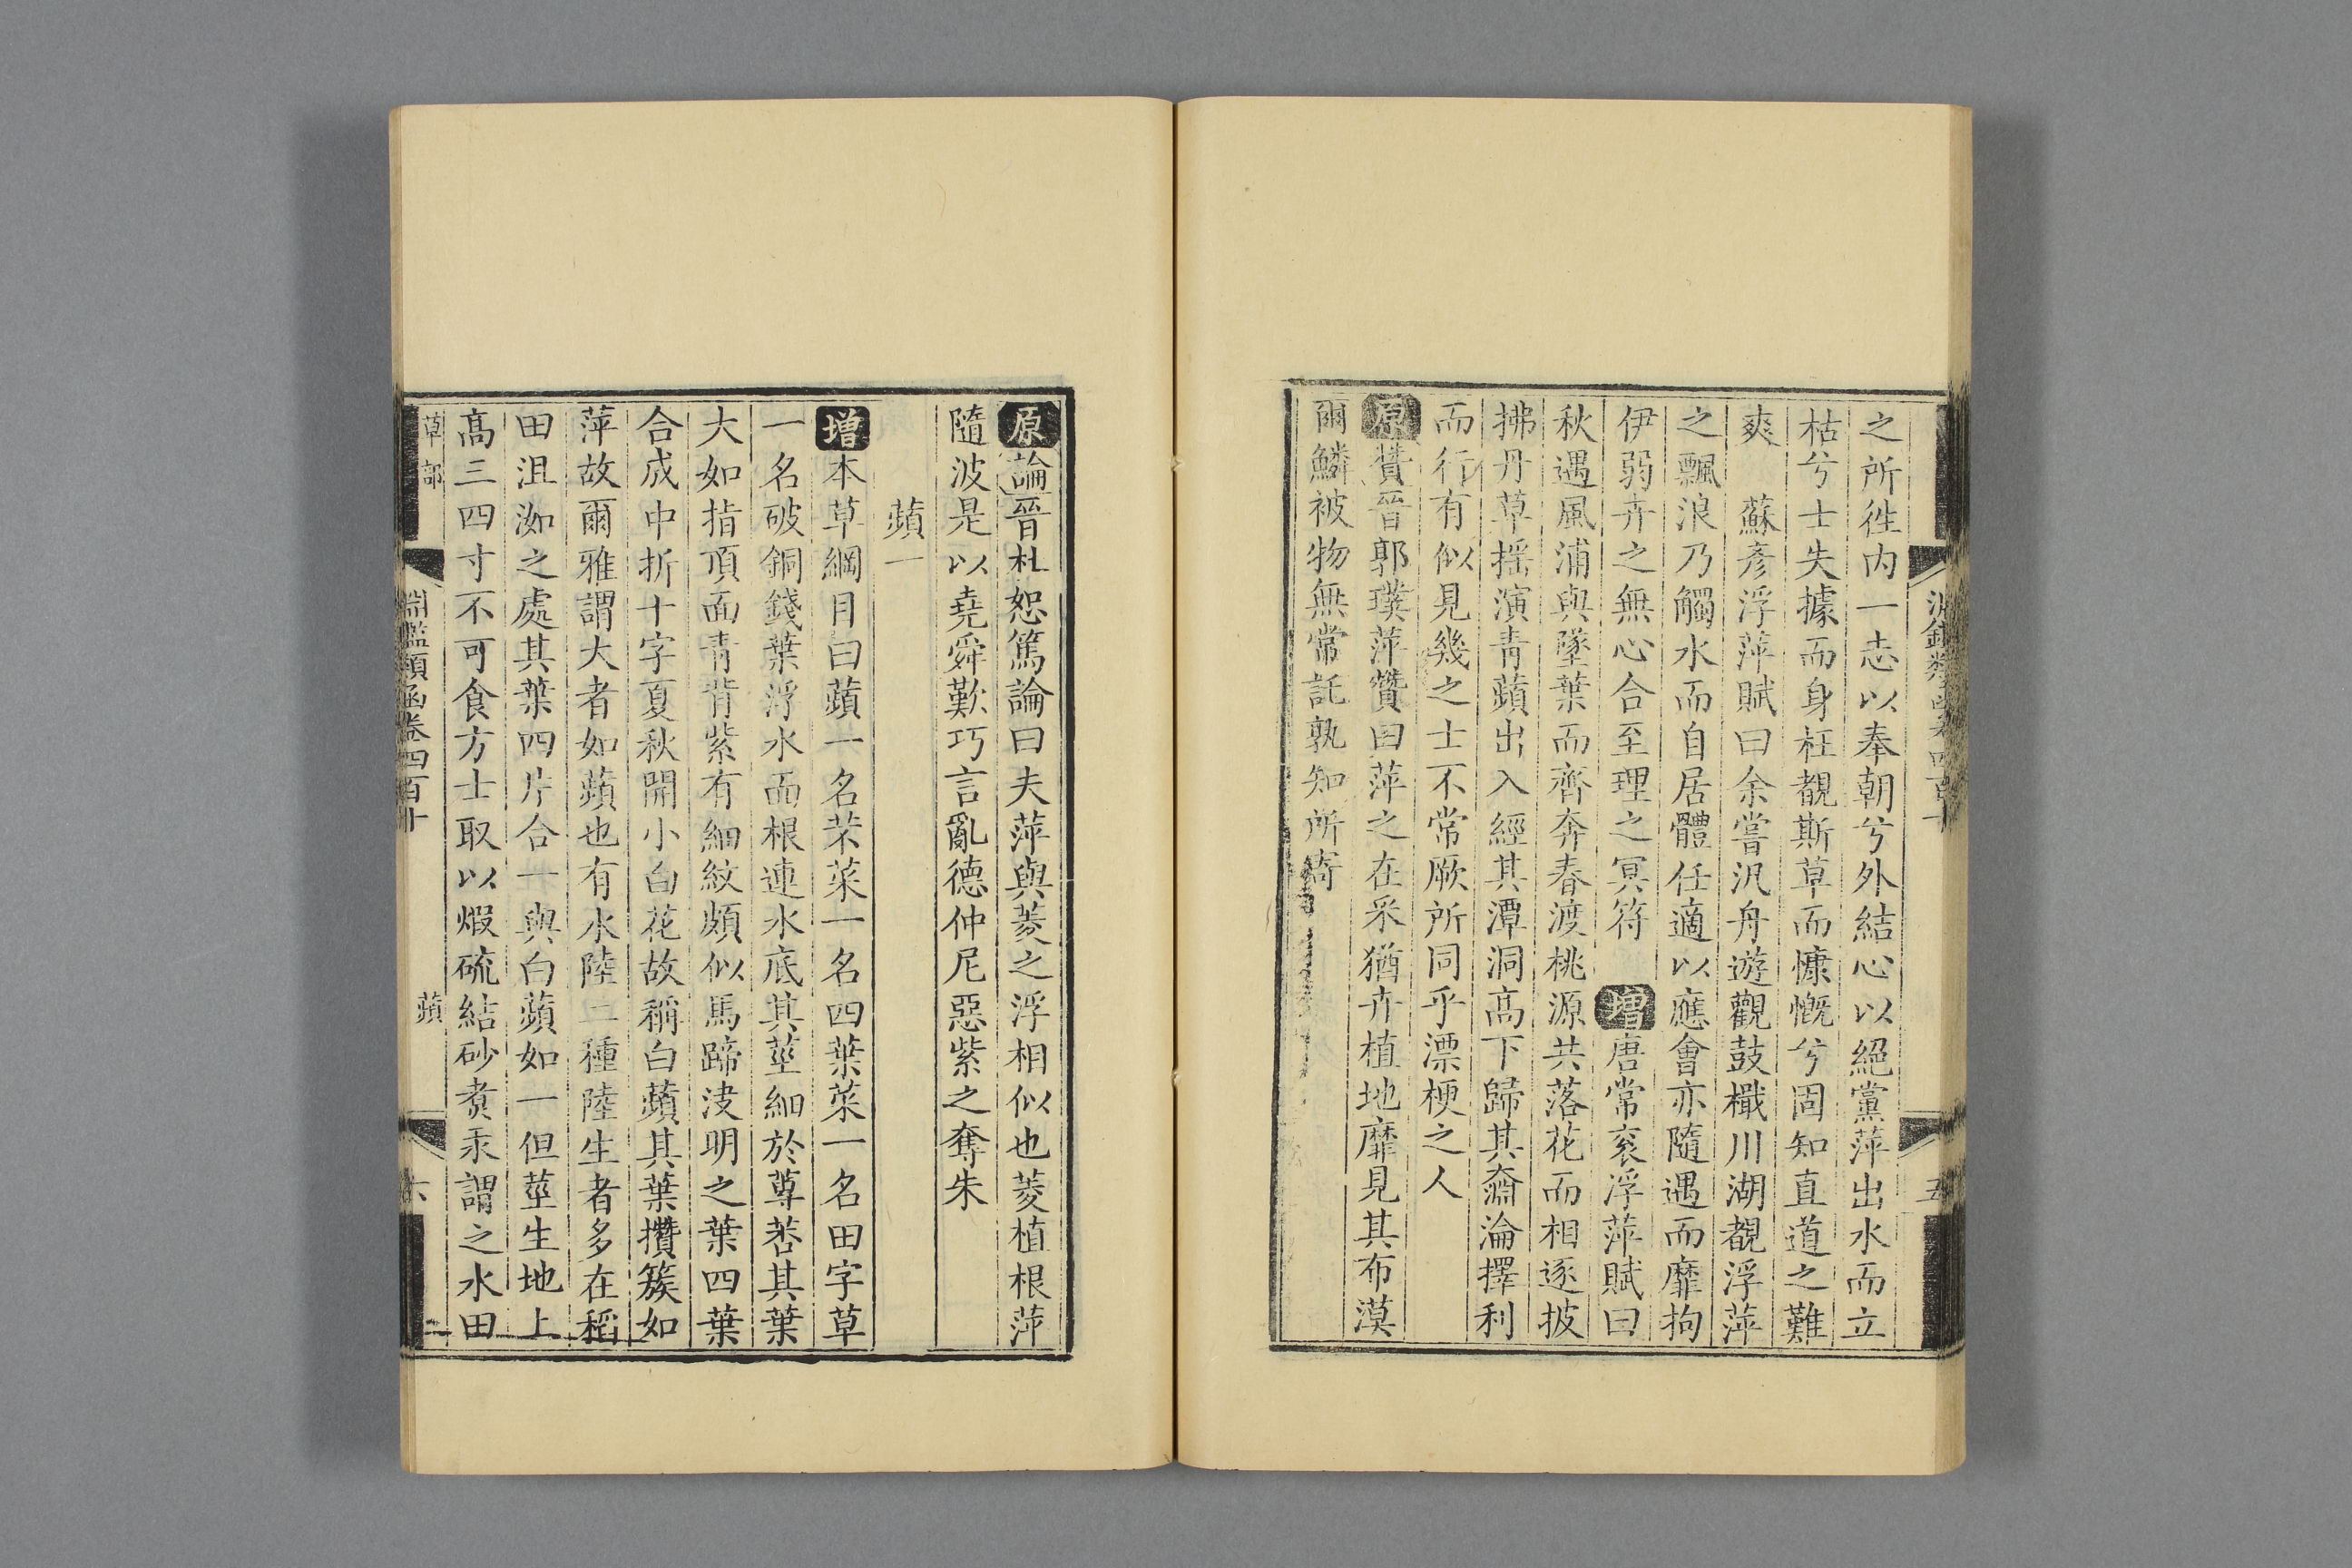 之所徃内一志以奉朝兮外結心以絕黨萍出水而立
枯兮士失據而身枉覩斯草而慷慨兮固知直道之難
爽　蘇彥浮萍賦曰余嘗汎舟遊觀鼓檝川湖覩浮萍
之飄浪乃觸水而自居體任適以應會亦隨遇而靡拘
伊弱卉之無心合至理之冥符　增唐常衮浮萍賦曰
秋遇風浦與墜葉而齊奔春渡桃源共落花而相逐披
拂丹草揺演青蘋出入經其潭洞高下歸其奫淪擇利
而行有似見幾之士不常厥所同乎漂梗之人
原贊晉郭璞萍贊曰萍之在釆猶卉植地靡見其布漠
爾鱗被物無常託孰知所寄
五
原論晉杜恕篤論曰夫萍與菱之浮相似也菱植根萍
隨波是以堯舜歎巧言亂德仲尼惡紫之奪朱
蘋一
增本草綱目曰蘋一名芣菜一名四葉菜一名田字草
一名破銅錢葉浮水面根連水底其莖細於蓴莕其葉
大如指頂面青背紫有細紋頗似馬蹄決明之葉四葉
合成中折十字夏秋開小白花故稱白蘋其葉攢簇如
萍故爾雅謂大者如蘋也有水陸二種陸生者多在稻
田沮洳之處其葉四片合一與白蘋如一但莖生地上
高三四寸不可食方士取以煆硫結砂煑汞謂之水田
草部
淵鑑類函卷四百十
蘋
六